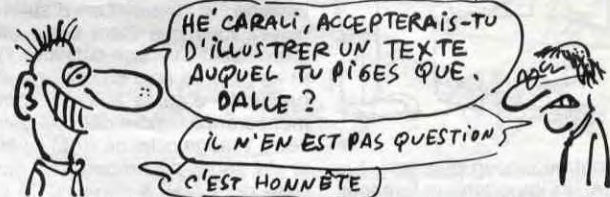 HE' CARALI, ACCEPTERAIS-TU
D'ILLUSTRER UN TEXTE
AUQUEL TU PIGES QUE.
DALLE ?
IL N'EN EST PAS QUESTION
C'EST HONNÊTE